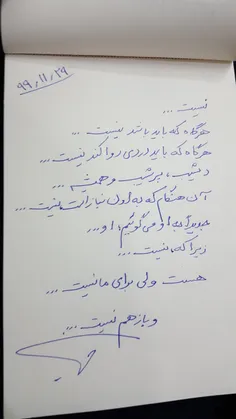 ۹۹/۱۱/۲۹
نیست ...
هرگاه که باید باشد نیست ...
هرگاه که باید دردی روا کند نیست ...
دیشب، پریشب و همیشه ...
آن هنگام که به او نیاز است نیست ...
او می‌گوئیم، او ...
زیرا که، نیست ...
هست ولی برای ما نیست ...
و باز هم نیست ...